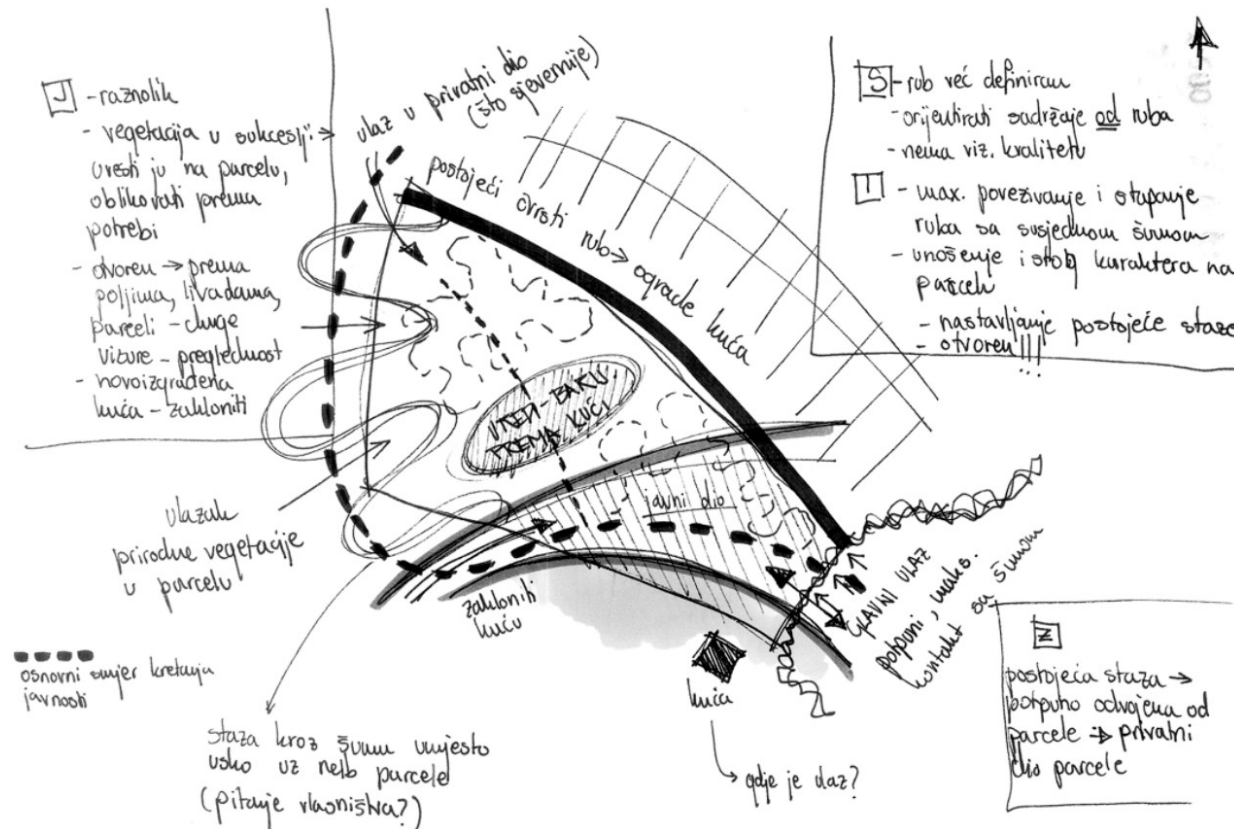 J - raznolik
- vegetacija u sukcesiji →
uvesti ju na parcelu,
oblikovati prema
potrebi
- otvoren → prema
poljima, livadama,
parceli - duge
vizure - preglednost
- novoizgrađena
kuća - zakloniti
ulaz u privatni dio
(što sjevernije)
postojeći čvrsti rub → ograde kuća
S - rub već definiran
- orijentirati sadržaje od ruba
- nema viz. kvalitetu
I - max. povezivanje i stapanje
ruba sa susjednom šumom
- unošenje istog karaktera na
parcelu
- nastavljanje postojeće staze
- otvoren!!!
PREMA KUĆI
javni dio
ulazak
prirodne vegetacije
u parcelu
zakloniti
kuću
GLAVNI ULAZ
potpuni, maks.
kontakt sa šumom
kuća
→ gdje je ulaz?
osnovni smjer kretanja
javnosti
staza kroz šumu umjesto
usko uz parcele
(pitanje vlasništva?)
Z
postojeća staza →
potpuno odvojena od
parcele → privatni
dio parcele